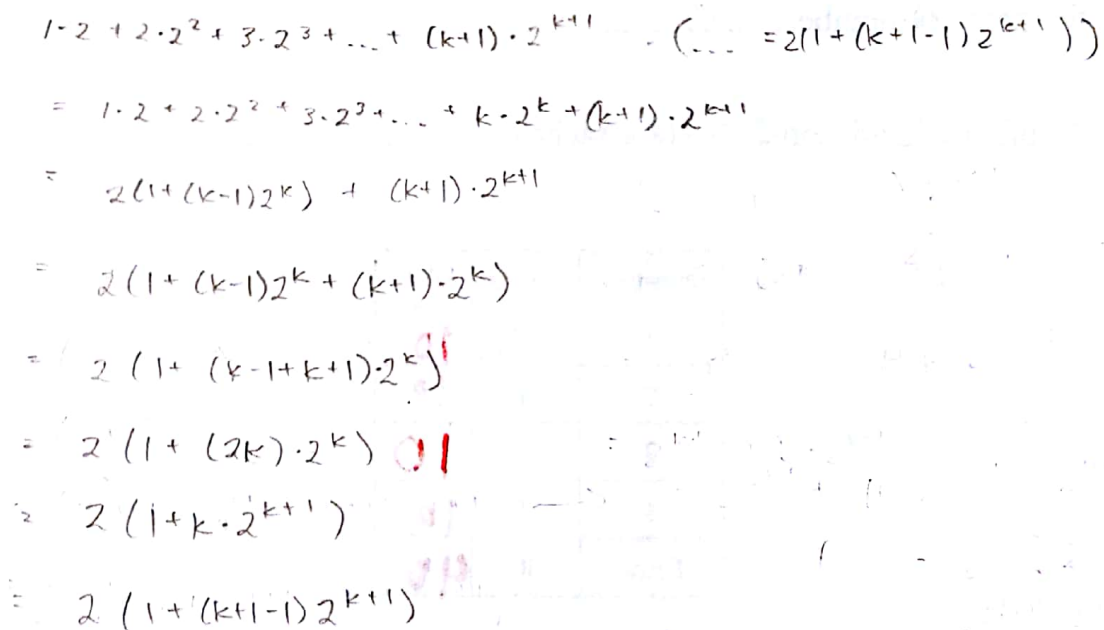 1·2 + 2·2² + 3·2³ + ... + (k+1)·2^{k+1} (... = 2(1+(k+1-1)2^{k+1}))
= 1·2 + 2·2² + 3·2³ + ... + k·2^k + (k+1)·2^{k+1}
= 2(1+(k-1)2^k) + (k+1)·2^{k+1}
= 2(1+(k-1)2^k + (k+1)·2^k)
= 2(1+(k-1+k+1)·2^k)
= 2(1+(2k)·2^k)
= 2(1+k·2^{k+1})
= 2(1+(k+1-1)2^{k+1})